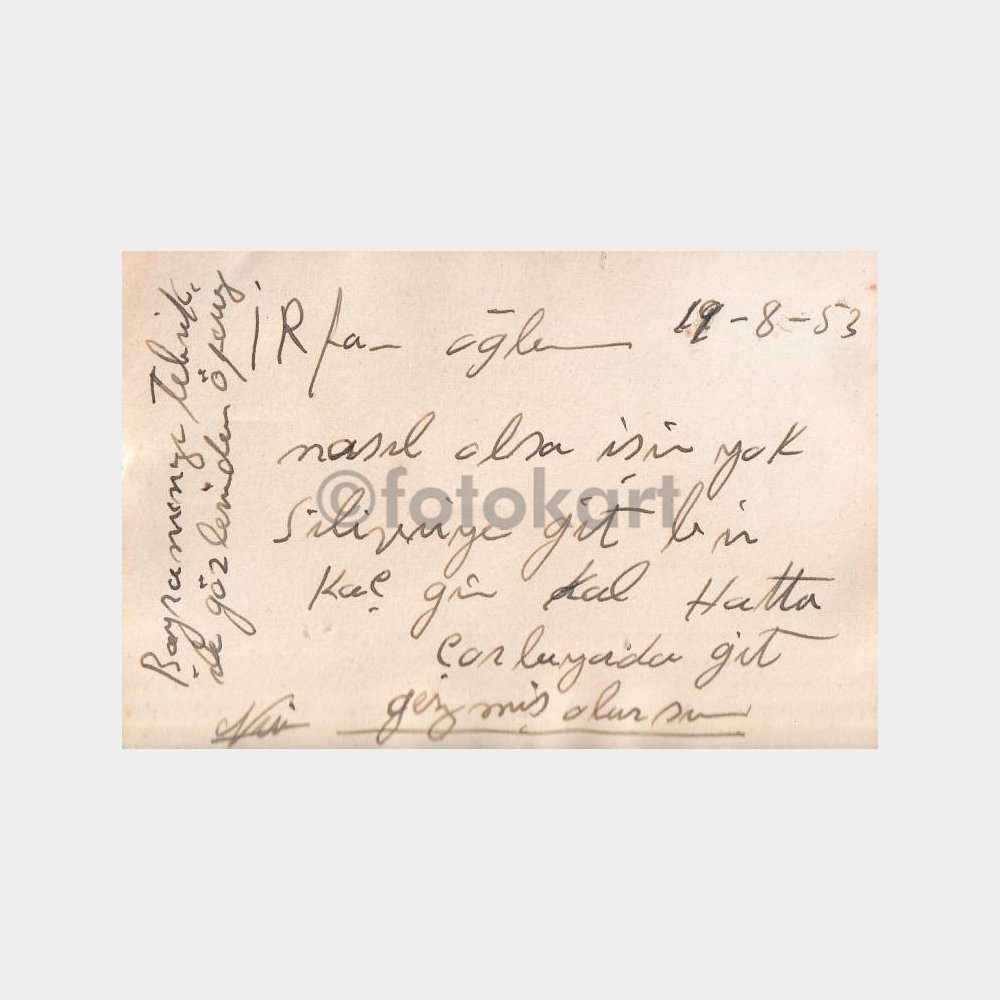 19-8-53
İRfan oğlum
nasıl olsa işin yok
Silivriye git bir
Kaç gün kal Hatta
Çorluyada git
gezmiş olursun
Bayramınızı Tebrik
ile gözlerinden öperiz
©fotokart